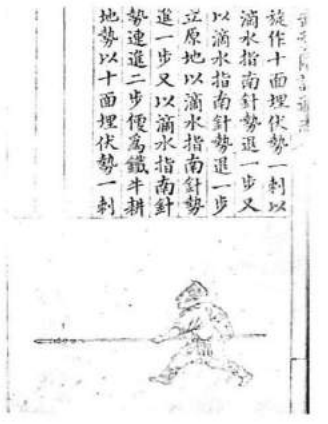 旋作十面埋伏勢一刺以
滴水指南針勢退一步又
以滴水指南針勢退一步
立原地以滴水指南針勢
進一步又以滴水指南針
勢連進二步便爲鐵牛耕
地勢以十面埋伏勢一刺